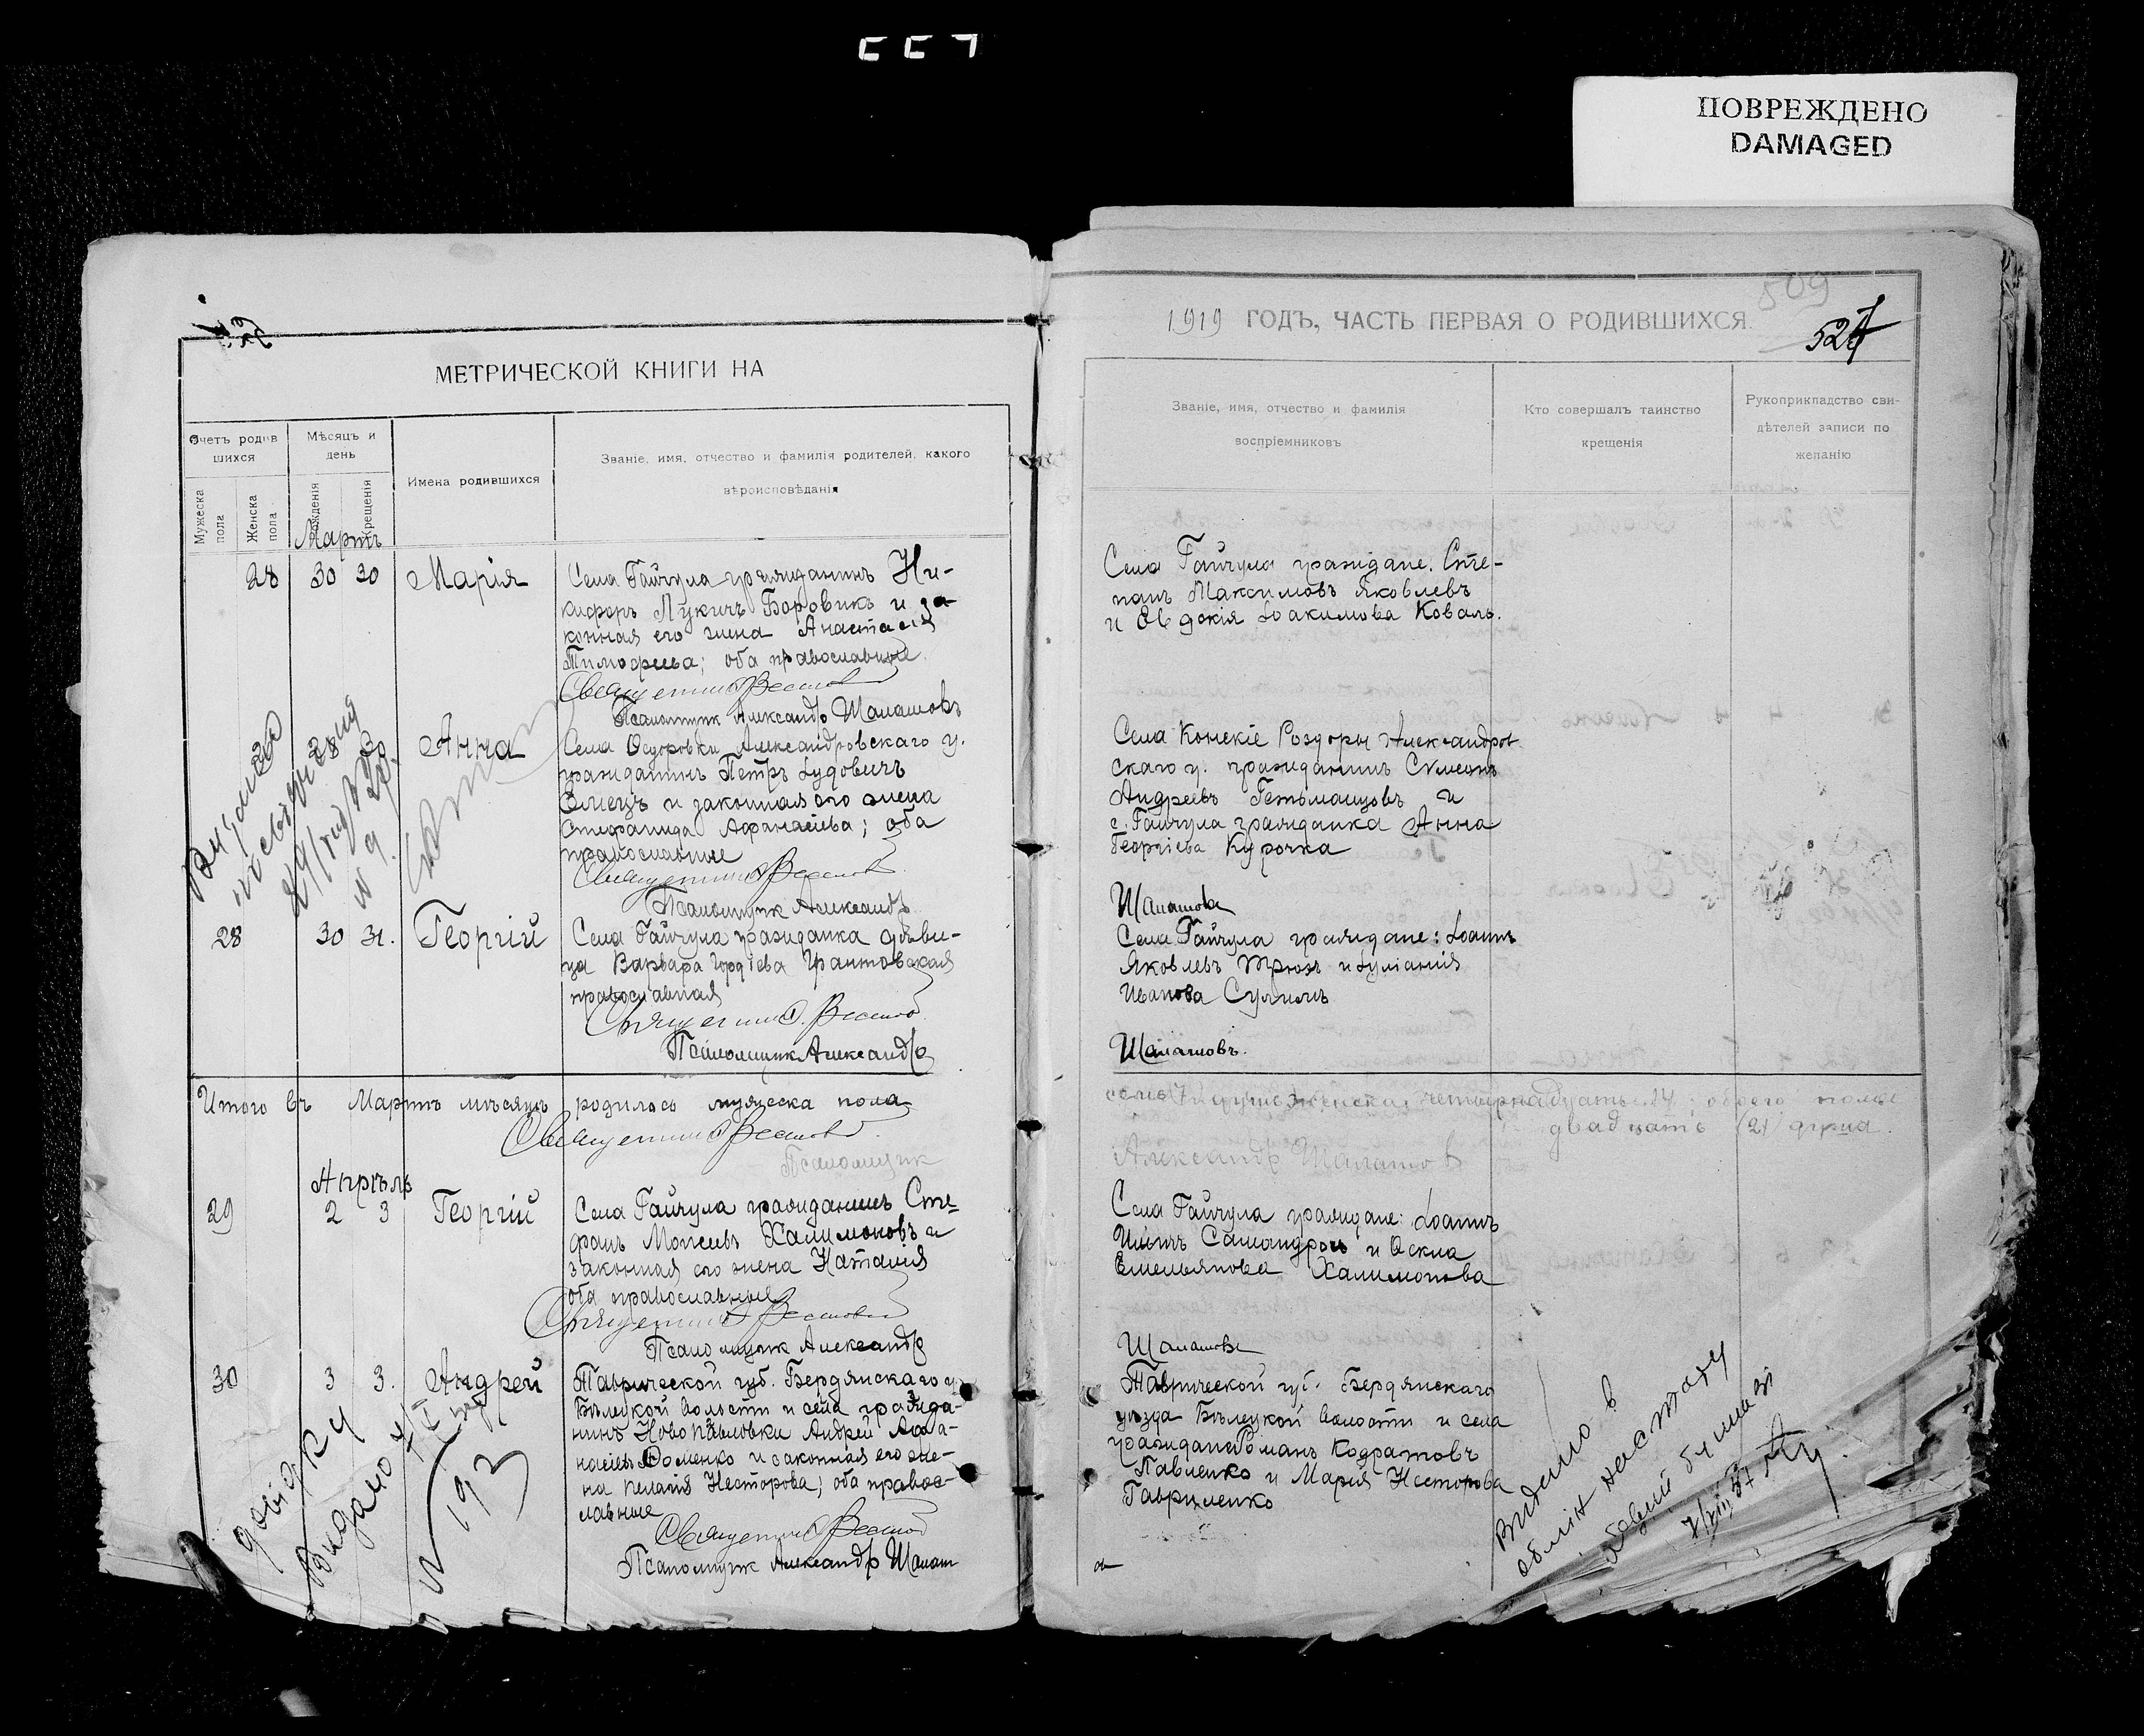 ПОВРЕЖДЕНО
DAMAGED
МЕТРИЧЕСКОЙ КНИГИ НА
Счетъ родив
шихся
Мѣсяцъ и
день
Имена родившихся
Званіе, имя, отчество и фамилія родителей, какого
вѣроисповѣданія
Мужеска
пола
Женска
пола
рожденія
крещенія
Мартъ
28 30 30 Марія
Села Гайчула гражданинъ Ни-
кифоръ Лукичъ Боровикъ и за-
конная его жена Анастасія
Тимофеева; оба православные
Священникъ
Псаломщик Александр Шалашовъ
28 30 Анна
Села Ѳедоровки Александровскаго у.
гражданинъ Петръ
и законная его жена
Стефанида Афанасіева; оба
православные
Священникъ
Псаломщик Александр
28 30 31. Георгій
Села Гайчула гражданка дѣви-
ца Варвара Гордіева Грантовская
православная
Священникъ
Псаломщик Александр
Итого въ Мартѣ мѣсяцѣ родилось мужеска пола
Священникъ
Псаломщик
Апрѣль
29 2 3 Георгій
Села Гайчула гражданинъ Сте-
фанъ Моисеевъ Халимоновъ и
законная его жена Наталія
оба православные
Священникъ
Псаломщик Александр
30 3 3. Андрей
Таврической губ. Бердянскаго у.
Бѣлецкой волости и села гражда-
нинъ Новопавловки Андрей Афа-
насіевъ Фоменко и законная его же-
на Пелагія Несторова; оба правос-
лавные
Священникъ
Псаломщик Александр Шалаш
довідку
Видано
193
1919 ГОДЪ, ЧАСТЬ ПЕРВАЯ О РОДИВШИХСЯ.
509
Званіе, имя, отчество и фамилія
воспріемниковъ
Кто совершалъ таинство
крещенія
Рукоприкладство сви-
дѣтелей записи по
желанію
Села Гайчула граждане: Сте-
панъ Максимовъ Яковлевъ
и Евдокія Іоакимова Коваль.
Села Конскіе Роздоры Александров
скаго у. гражданинъ Симеонъ
Андреевъ Гетьманцовъ и
с. Гайчула гражданка Анна
Георгіева Курочка
Шалашовъ
Села Гайчула граждане: Іоаннъ
Яковлевъ и Іуліанія
Иванова Сулимъ
Шалашовъ.
семь 7 душъ женска четырнадцать 14; обоего пола
двадцать (21) душа.
Александр Шалашовъ
Села Гайчула граждане: Іоаннъ
и Ѳекла
Емельянова Халимонова
Шалашовъ
Таврической губ. Бердянскаго
уѣзда Бѣлецкой волости и села
граждане Романъ Кодратовъ
Павленко и Марія Несторова
Гавриленко
Видано в